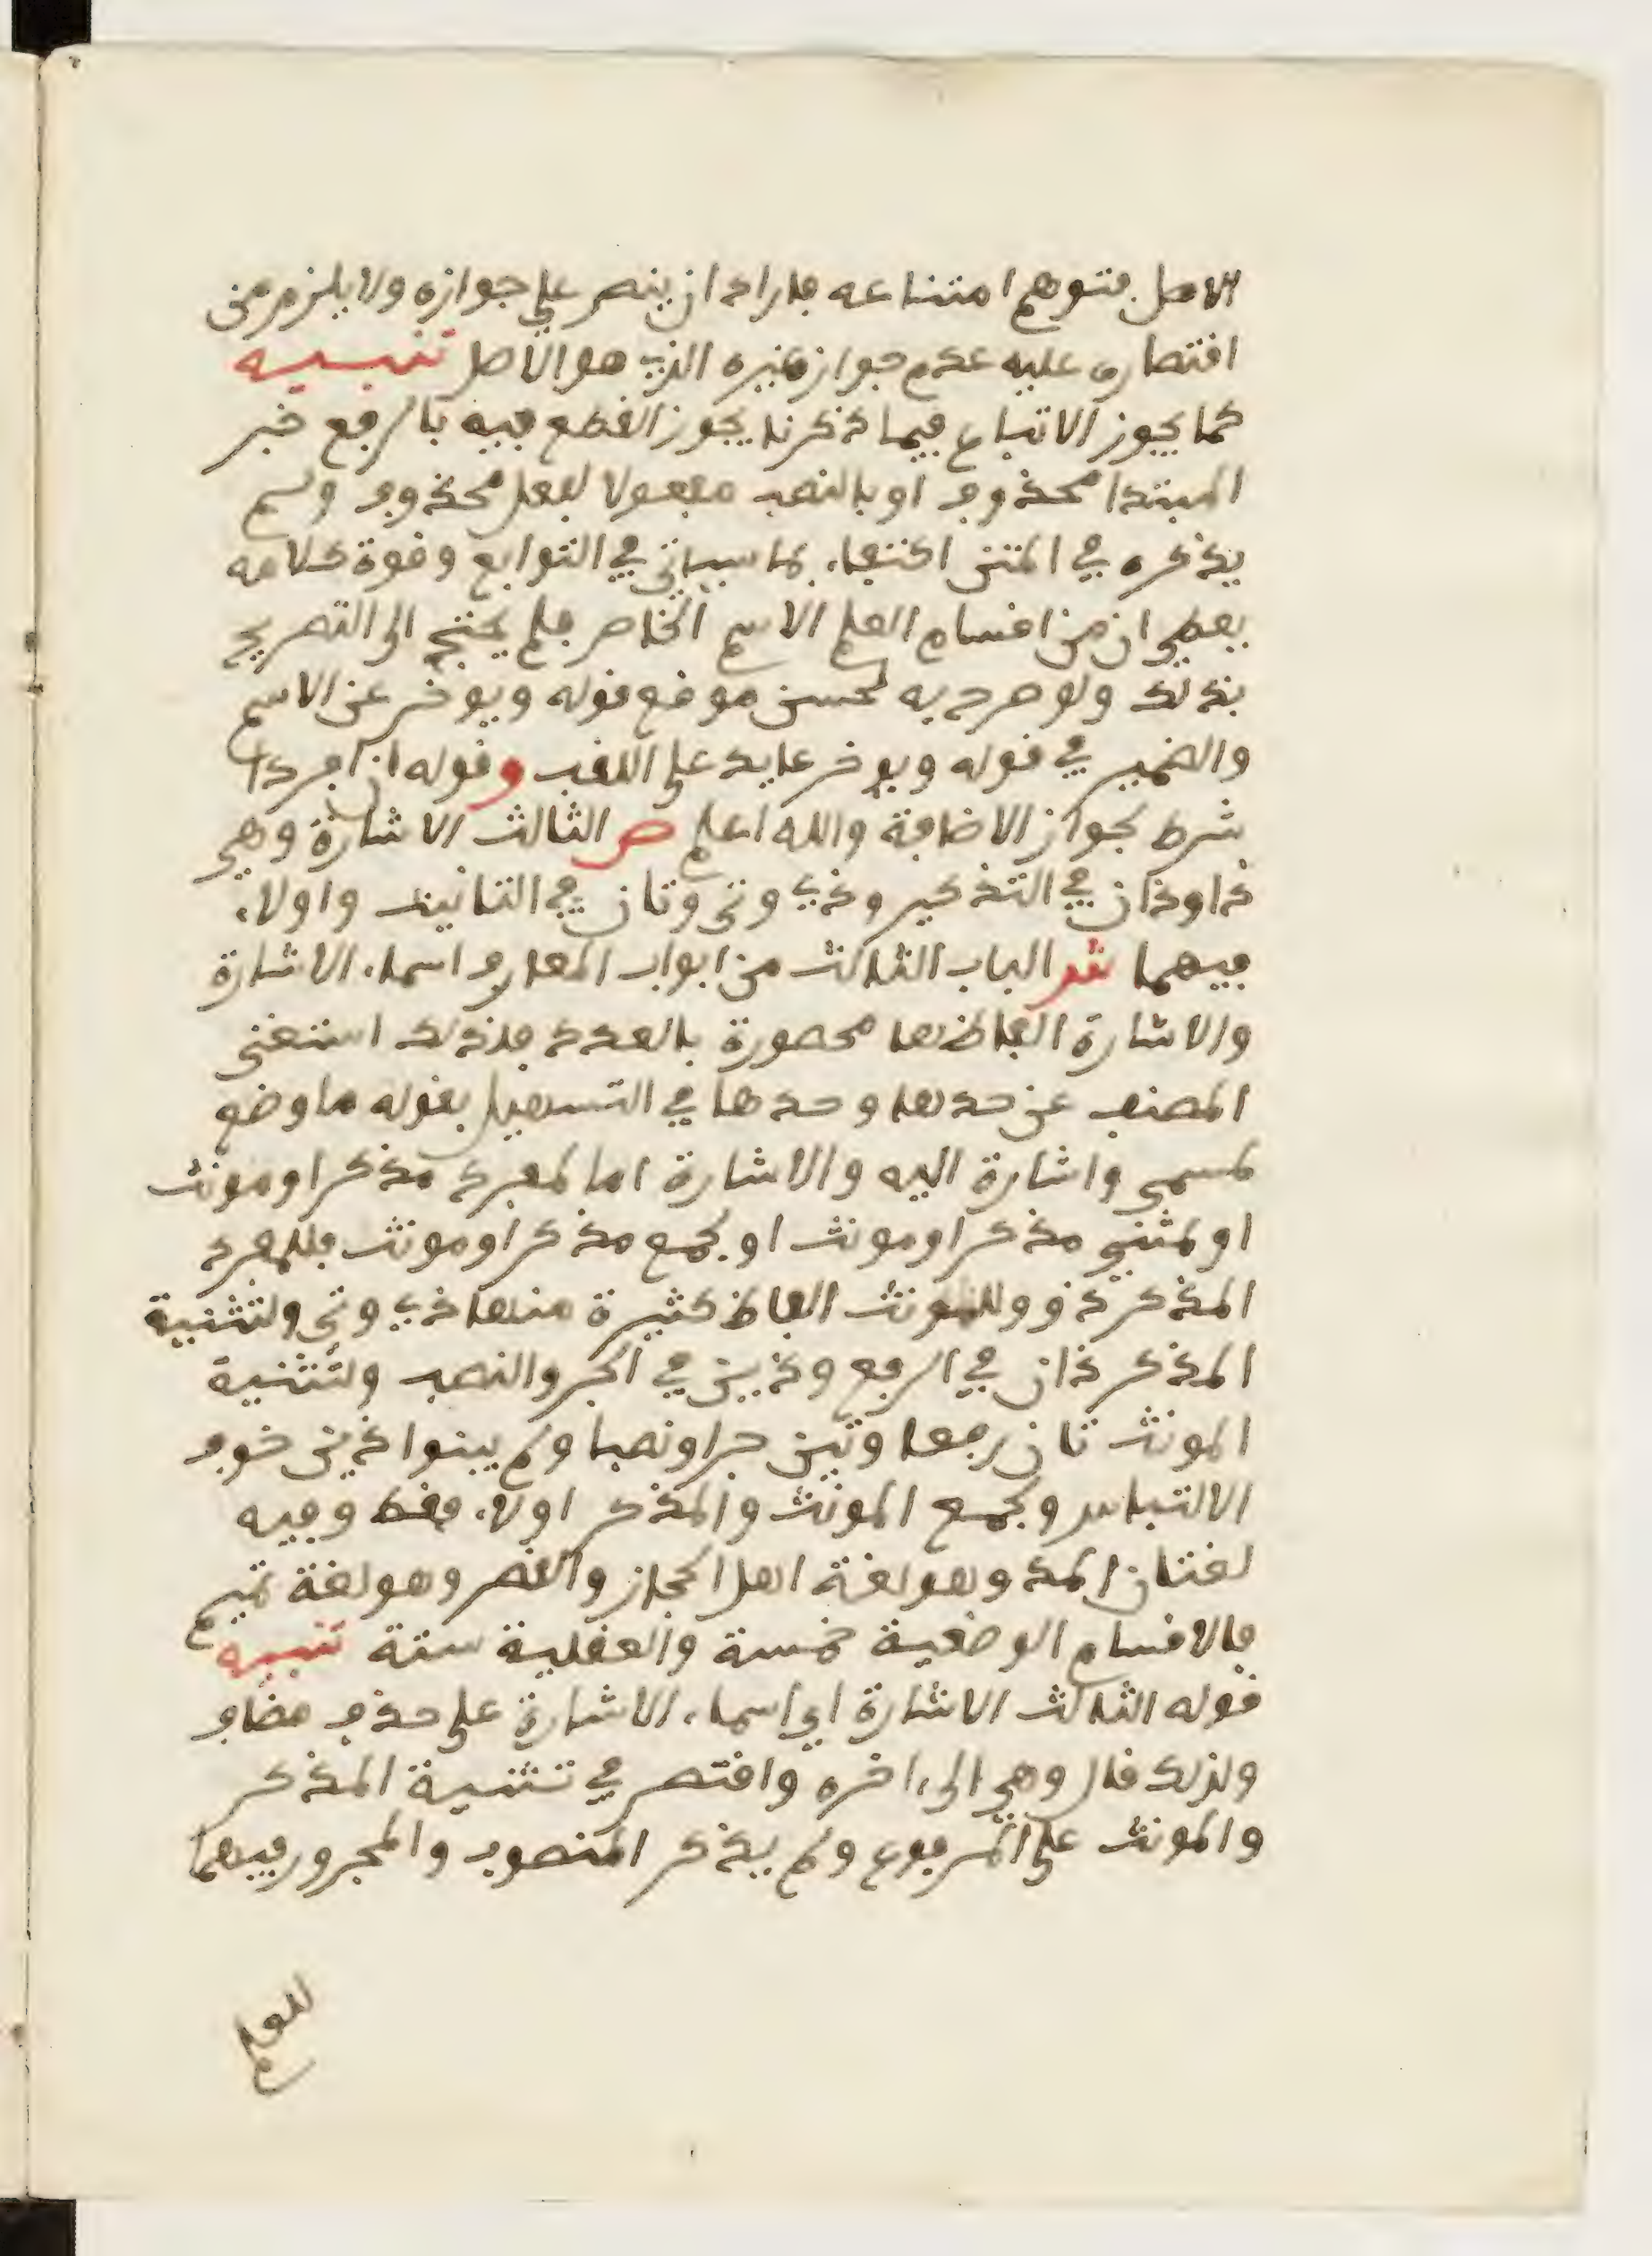 الاصل فتوهم امتناعه فاراد ان ينص على جوازه ولا يلزم من
اقتصاره عليه عدم جواز غيره الذي هو الاصل تنبيه
كما يجوز الاتباع فيما ذكرنا يجوز القطع فيه بالرفع خبر
المبتدا محذوف او بالنصب مفعولا لفعل محذوف ولم
يذكره في المتن اكتفاء بما سياتي في التوابع وقوة كلامه
يعطي ان من اقسام العلم الاسم الخاص فلم يحتج الى التصريح
بذلك ولو صرح به لحسن موضع قوله ويوخر عن الاسم
والضمير في قوله ويوخر عايد على اللقب وقوله ان افردا
شرط لجواز الاضافة والله اعلم ص الثالث الاشارة وهي
ذا وذان في التذكير وذي وتي وتان في التانيث واولاء
فيهما ش الباب الثالث من ابواب المعارف اسماء الاشارة
والاشارة الفاظها محصورة بالعدد فلذلك استغنى
المصنف عن حدها وحدها في التسهيل بقوله ما وضع
لمسمى واشارة اليه والاشارة اما لمفرد مذكر او مونث
او لمثنى مذكر او مونث او لجمع مذكر او مونث فللمفرد
المذكر ذو وللمونث الفاظ كثيرة منها ذي وتي ولتثنية
المذكر ذان في الرفع وذين في الجر والنصب ولتثنية
المونث تان رفعا وتين جرا ونصبا ولم يبنوا ذين خوف
الالتباس ولجمع المونث والمذكر اولاء فقط وفيه
لغتان المد وهو لغة اهل الحجاز والقصر وهو لغة تميم
فالاقسام الوضعية خمسة والعقلية ستة تنبيه
قوله الثالث الاشارة اي اسماء الاشارة على حذف مضاف
ولذلك قال وهي الى ءاخره واقتصر في تثنية المذكر
والمونث على المرفوع ولم يذكر المنصوب والمجرور فيهما